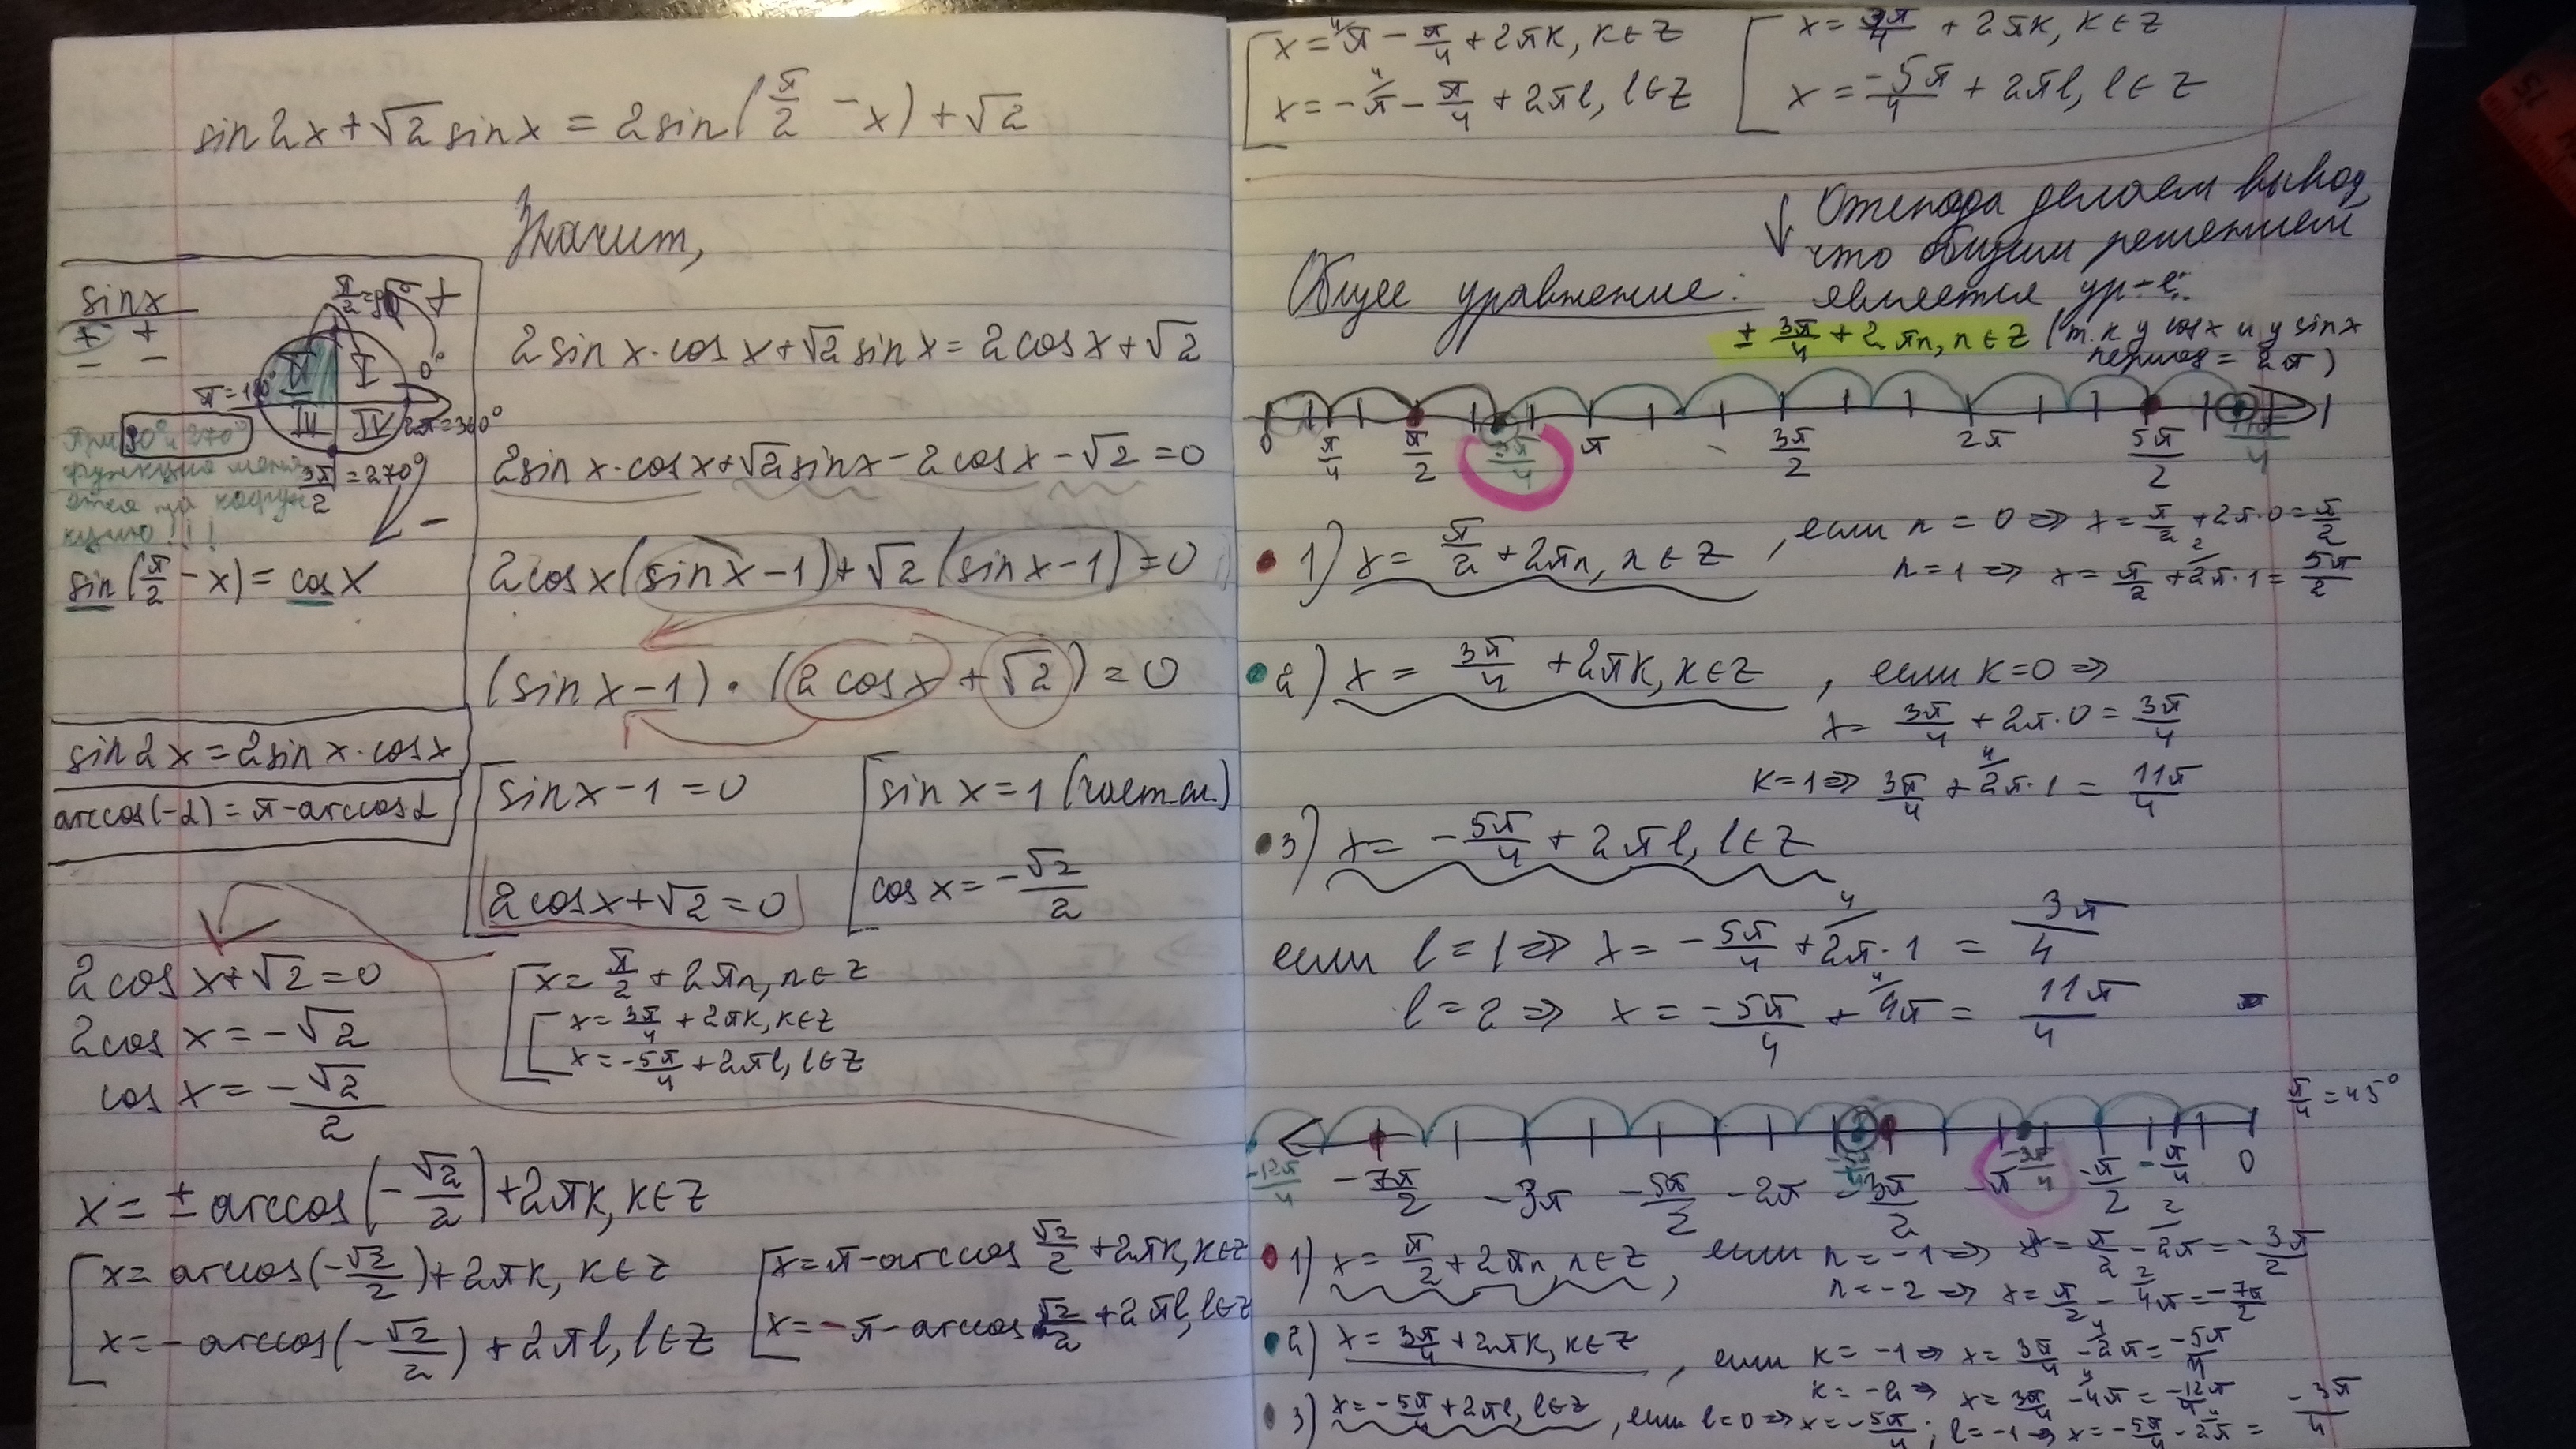 sin2x+√2 sinx = 2sin(π/2 - x) + √2
Значит,
sinx
+ +
- -
π/2 = 90° +
II I 0°
π = 180°
III IV 2π = 360°
3π/2 = 270°
-
При 90° и 270°
функция меня
ется на кофун
кцию!!!
sin(π/2 - x) = cosx
2sinx·cosx+√2 sinx = 2cosx+√2
2sinx·cosx+√2 sinx - 2cosx - √2 = 0
2cosx(sinx-1)+√2(sinx-1) = 0
(sinx-1)·(2cosx+√2) = 0
sin2x = 2sinx·cosx
arccos(-2) = π-arccos2
[ sinx-1 = 0
2cosx+√2 = 0
[ sinx = 1 (част.сл.)
cosx = -√2/2
2cosx+√2 = 0
2cosx = -√2
cosx = -√2/2
[ x = π/2 + 2πn, n∈Z
[ x = 3π/4 + 2πk, k∈Z
x = -5π/4 + 2πl, l∈Z
x = ± arccos(-√2/2)+2πk, k∈Z
[ x = arccos(-√2/2)+2πk, k∈Z
x = -arccos(-√2/2) + 2πl, l∈Z
[ x = π-arccos √2/2 + 2πk, k∈Z
x = -π-arccos √2/2 + 2πl, l∈Z
[ x = π - π/4 + 2πk, k∈Z
x = -π - π/4 + 2πl, l∈Z
[ x = 3π/4 + 2πk, k∈Z
x = -5π/4 + 2πl, l∈Z
↓ Отсюда делаем вывод,
что общим решением
Общее уравнение: является ур-е:
± 3π/4 + 2πn, n∈Z (т.к у cosx и у sinx
период = 2π)
0 π/4 π/2 3π/4 π 3π/2 2π 5π/2 11π/4
1) x = π/2 + 2πn, n∈Z, если n = 0 => x = π/2 + 2π·0 = π/2
n = 1 => x = π/2 + 2π·1 = 5π/2
2) x = 3π/4 + 2πk, k∈Z, если k = 0 =>
x = 3π/4 + 2π·0 = 3π/4
k = 1 => 3π/4 + 2π·1 = 11π/4
3) x = -5π/4 + 2πl, l∈Z
если l = 1 => x = -5π/4 + 2π·1 = 3π/4
l = 2 => x = -5π/4 + 4π = 11π/4
π/4 = 45°
-12π/4 -7π/2 -3π -5π/2 -2π -5π/4 -3π/2 -π -3π/4 -π/2 -π/4 0
1) x = π/2 + 2πn, n∈Z, если n = -1 => x = π/2 - 2π = -3π/2
n = -2 => x = π/2 - 4π = -7π/2
2) x = 3π/4 + 2πk, k∈Z, если k = -1 => x = 3π/4 - 2π = -5π/4
k = -2 => x = 3π/4 - 4π = -12π/4
3) x = -5π/4 + 2πl, l∈Z, если l = 0 => x = -5π/4; l = -1 => x = -5π/4 - 2π = -3π/4